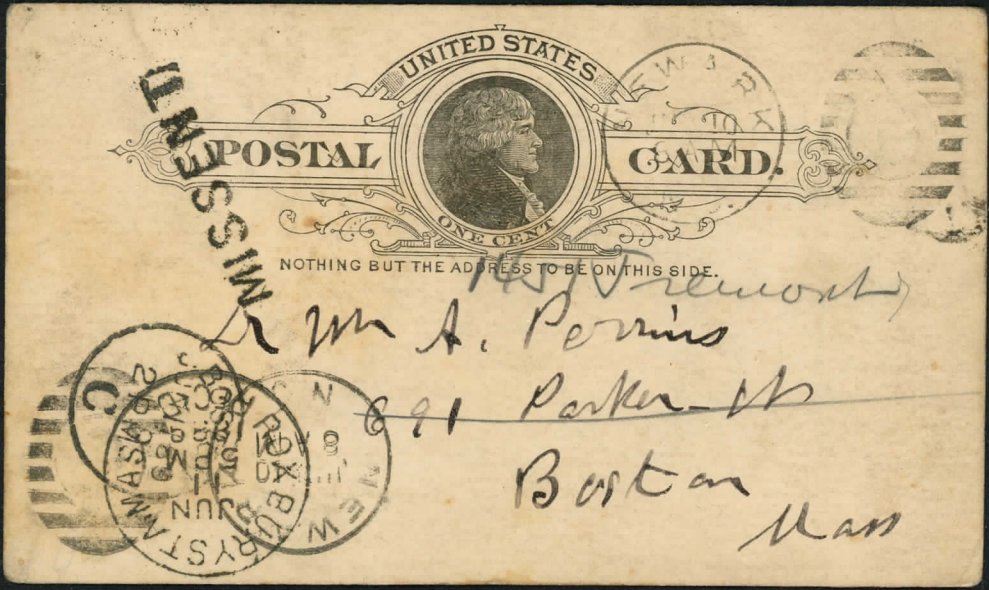 UNITED STATES
POSTAL CARD.
ONE CENT
NOTHING BUT THE ADDRESS TO BE ON THIS SIDE.
MISSENT
NEW YORK
10
AM
1451 Tremont
Wm A. Perrins
691 Parker St
Boston
Mass
C
ROXBURY STA. MASS
JUN
11
NEW